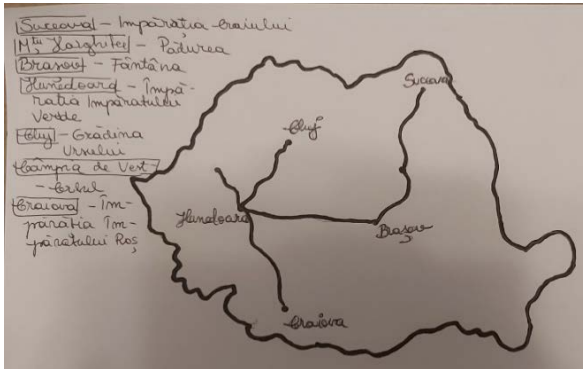 Suceava - Împărăția Craiului
Mții Harghitei - Pădurea
Brașov - Fântâna
Hunedoara - Împă-
rația Împăratului
Verde
Cluj - Grădina
Ursului
Câmpia de Vest -
- Cerbul
Craiova - Îm-
părăția Îm-
păratului Roș
Suceava
Cluj
Hunedoara
Brașov
Craiova